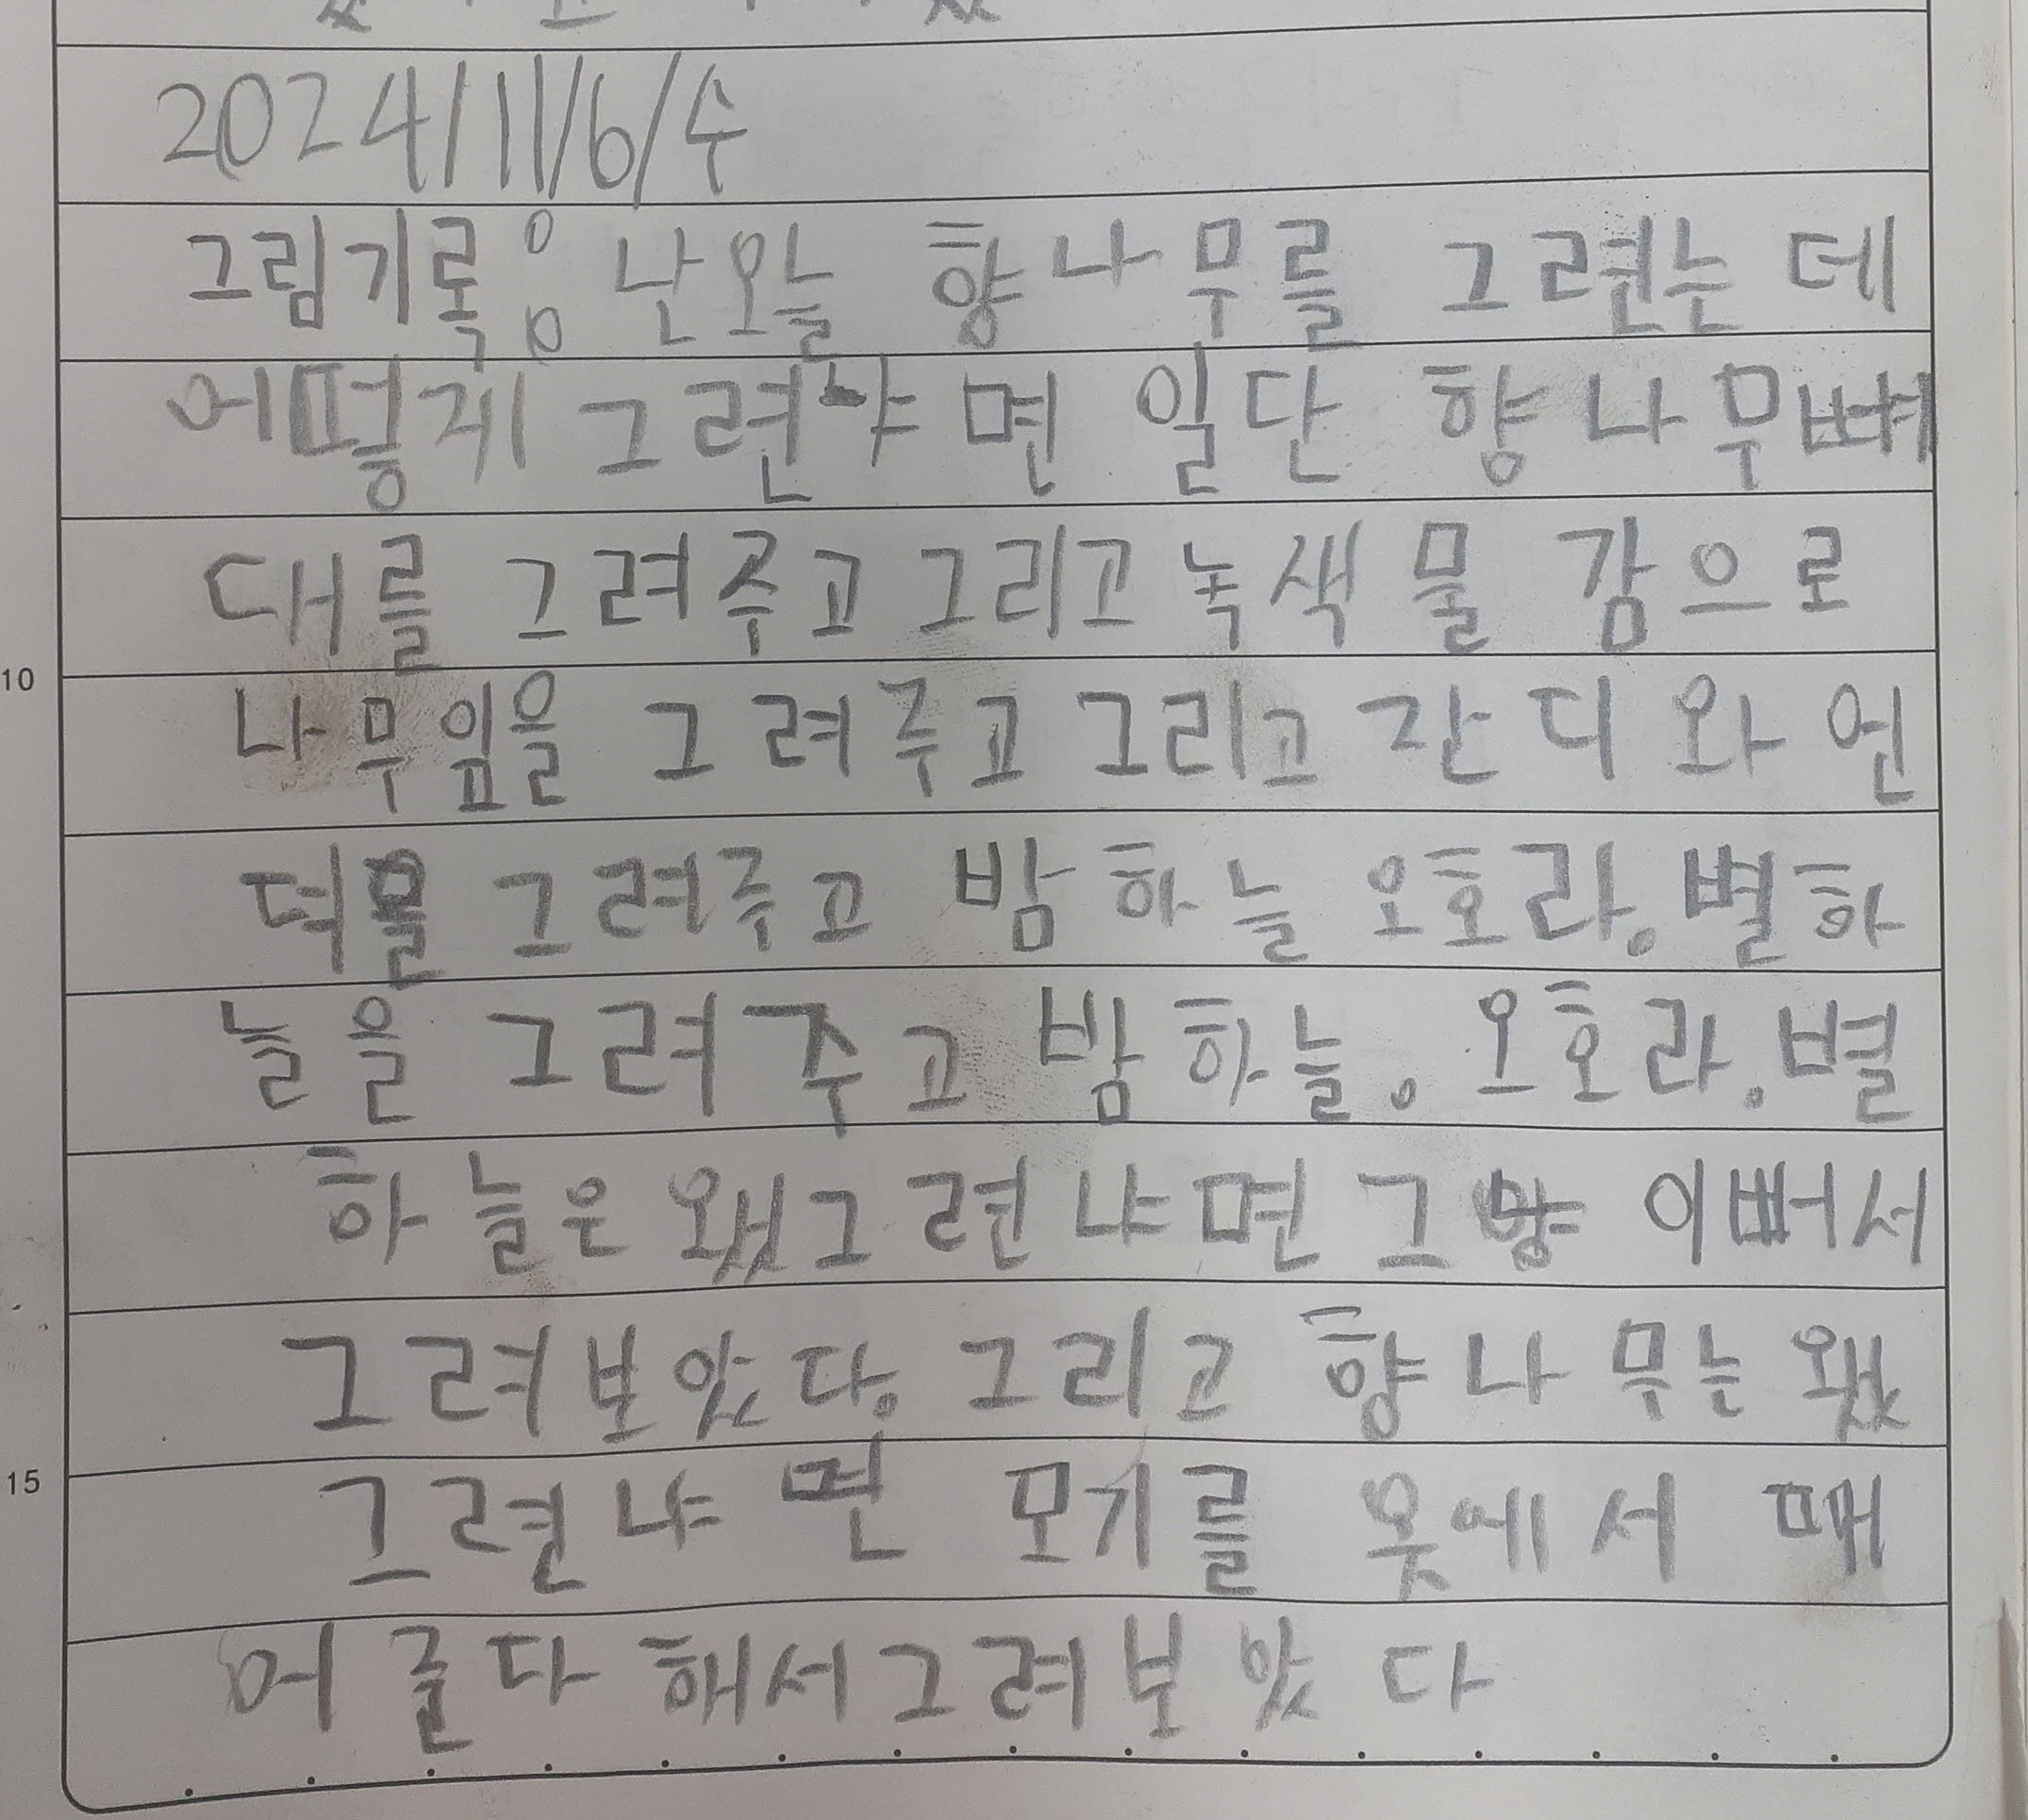 2024/11/6/수
그림기록: 난오늘 향나무를 그련는데
어떻게 그련냐면 일단 향나무뼈
대를 그려주고 그리고 녹색물감으로
나무잎을 그려주고 그리고 잔디와 언
덕을 그려주고 밤하늘 오호라. 별하
늘을 그려주고 밤하늘. 오호라. 별
하늘은 왰그련냐면 그냥 이뻐서
그려보았다. 그리고 향나무는 왰
그련냐면 모기를 옷에서 때
어준다해서그려보았다